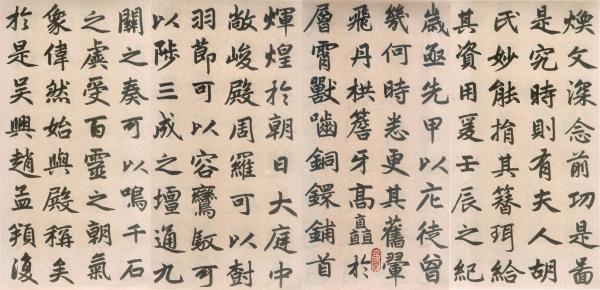 煥文深念前功是圖
是究時則有夫人胡
氏妙能捐其簪珥給
其資用爰壬辰之紀
歲亟先甲以庀徒曾
幾何時悉更其舊翬
飛丹栱簷牙高矗於
層霄獸嚙銅鐶鋪首
煇煌於朝日大庭中
敞峻殿周羅可以樹
羽節可以容鸞馭可
以陟三成之壇通九
關之奏可以鳴千石
之虡受百靈之朝氣
象偉然始與殿稱矣
於是吳興趙孟頫復